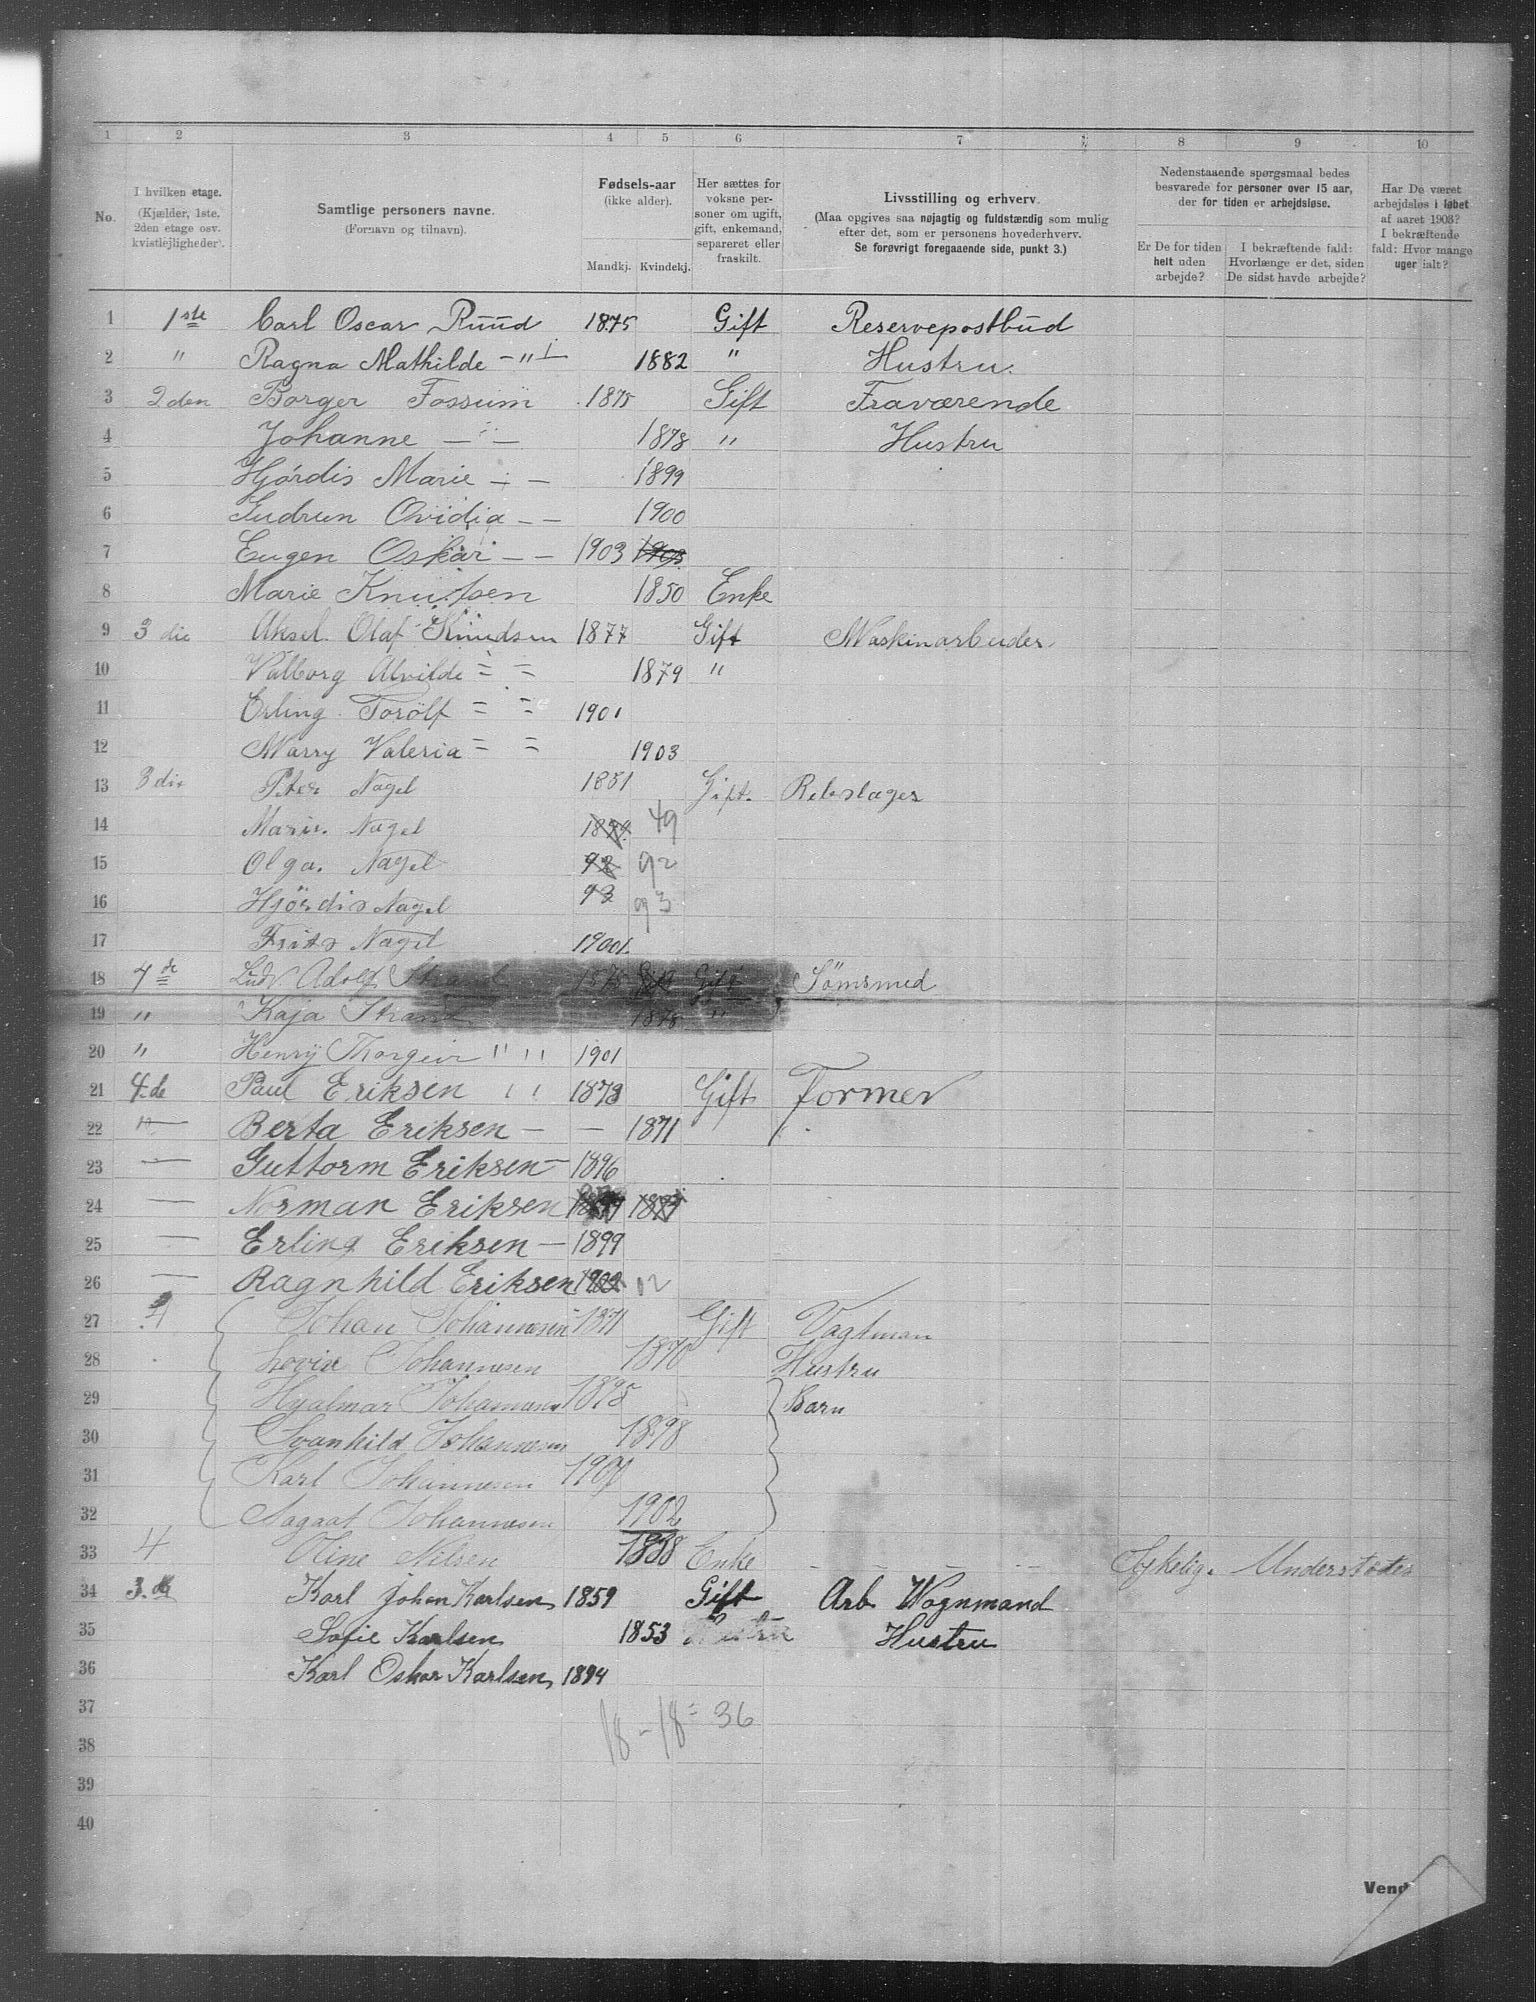 1 2 3 4 5 6 7 8 9 10
No.
I hvilken etage.
(Kjælder, 1ste.
2den etage osv.
kvistlejligheder).
Samtlige personers navne.
(Fornavn og tilnavn).
Fødsels-aar
(ikke alder).
Mandkj. Kvindekj.
Her sættes for
voksne per-
soner om ugift,
gift, enkemand,
separeret eller
fraskilt.
Livsstilling og erhverv.
(Maa opgives saa nøjagtig og fuldstændig som mulig
efter det, som er personens hovederhverv.
Se forøvrigt foregaaende side, punkt 3.)
Nedenstaaende spørgsmaal bedes
besvarede for personer over 15 aar,
der for tiden er arbejdsløse.
Er De for tiden
helt uden
arbejde?
I bekræftende fald:
Hvorlænge er det, siden
De sidst havde arbejde?
Har De været
arbejdsløs i løbet
af aaret 1903?
I bekræftende
fald: Hvor mange
uger ialt?
1 1ste Carl Oscar Ruud 1875 Gift Reservepostbud
2 " Ragna Mathilde — " — 1882 " Hustru.
3 2den Borger Fossum 1875 Gift Fraværende
4 Johanne — " — 1878 " Hustru
5 Hjørdis Marie — — 1899
6 Gudrun Ovidia — — 1900
7 Eugen Oskar — — 1903 1903
8 Marie Knudsen 1850 Enke
9 3die Aksel Olaf Knudsen 1877 Gift Maskinarbeider
10 Valborg Alvilde = = 1879 "
11 Erling Torolf = = 1901
12 Marry Valeria = = 1903
13 3die Peter Nagel 1851 Gift. Rebslager
14 Marie Nagel 1849 49
15 Olga. Nagel 92 92
16 Hjørdis Nagel 93 93
17 Frits Nagel 1900
18 4de Ludv Adolf Strand 1875 Gift Sömsmed
19 " Kaja Strand 1878 "
20 " Henry Thorgeir " " 1901
21 4.de Paul Eriksen " 1873 Gift Former
22 —"— Berta Eriksen — — 1871
23 — Guttorm Eriksen — 1896
24 — Norman Eriksen
25 — Erling Eriksen — 1899
26 — Ragnhild Eriksen 1902 02
27 4 Johan Johannesen 1871 Gift Vagtman
28 Lovise Johannesen 1870 Hustru
29 Hjalmar Johannesen 1895 Barn
30 Svanhild Johannesen 1898
31 Karl Johannesen 1900
32 Aagaat Johannesen 1902
33 4 Oline Nilsen 1838 Enke — — — — Sykelig. Understøttes
34 3.de Karl Johan Karlsen 1859 Gift Arb. Vognmand
35 Sofie Karlsen 1853 Hustru Hustru
36 Karl Oskar Karlsen 1894
37 18 - 18 = 36
38
39
40
Vend